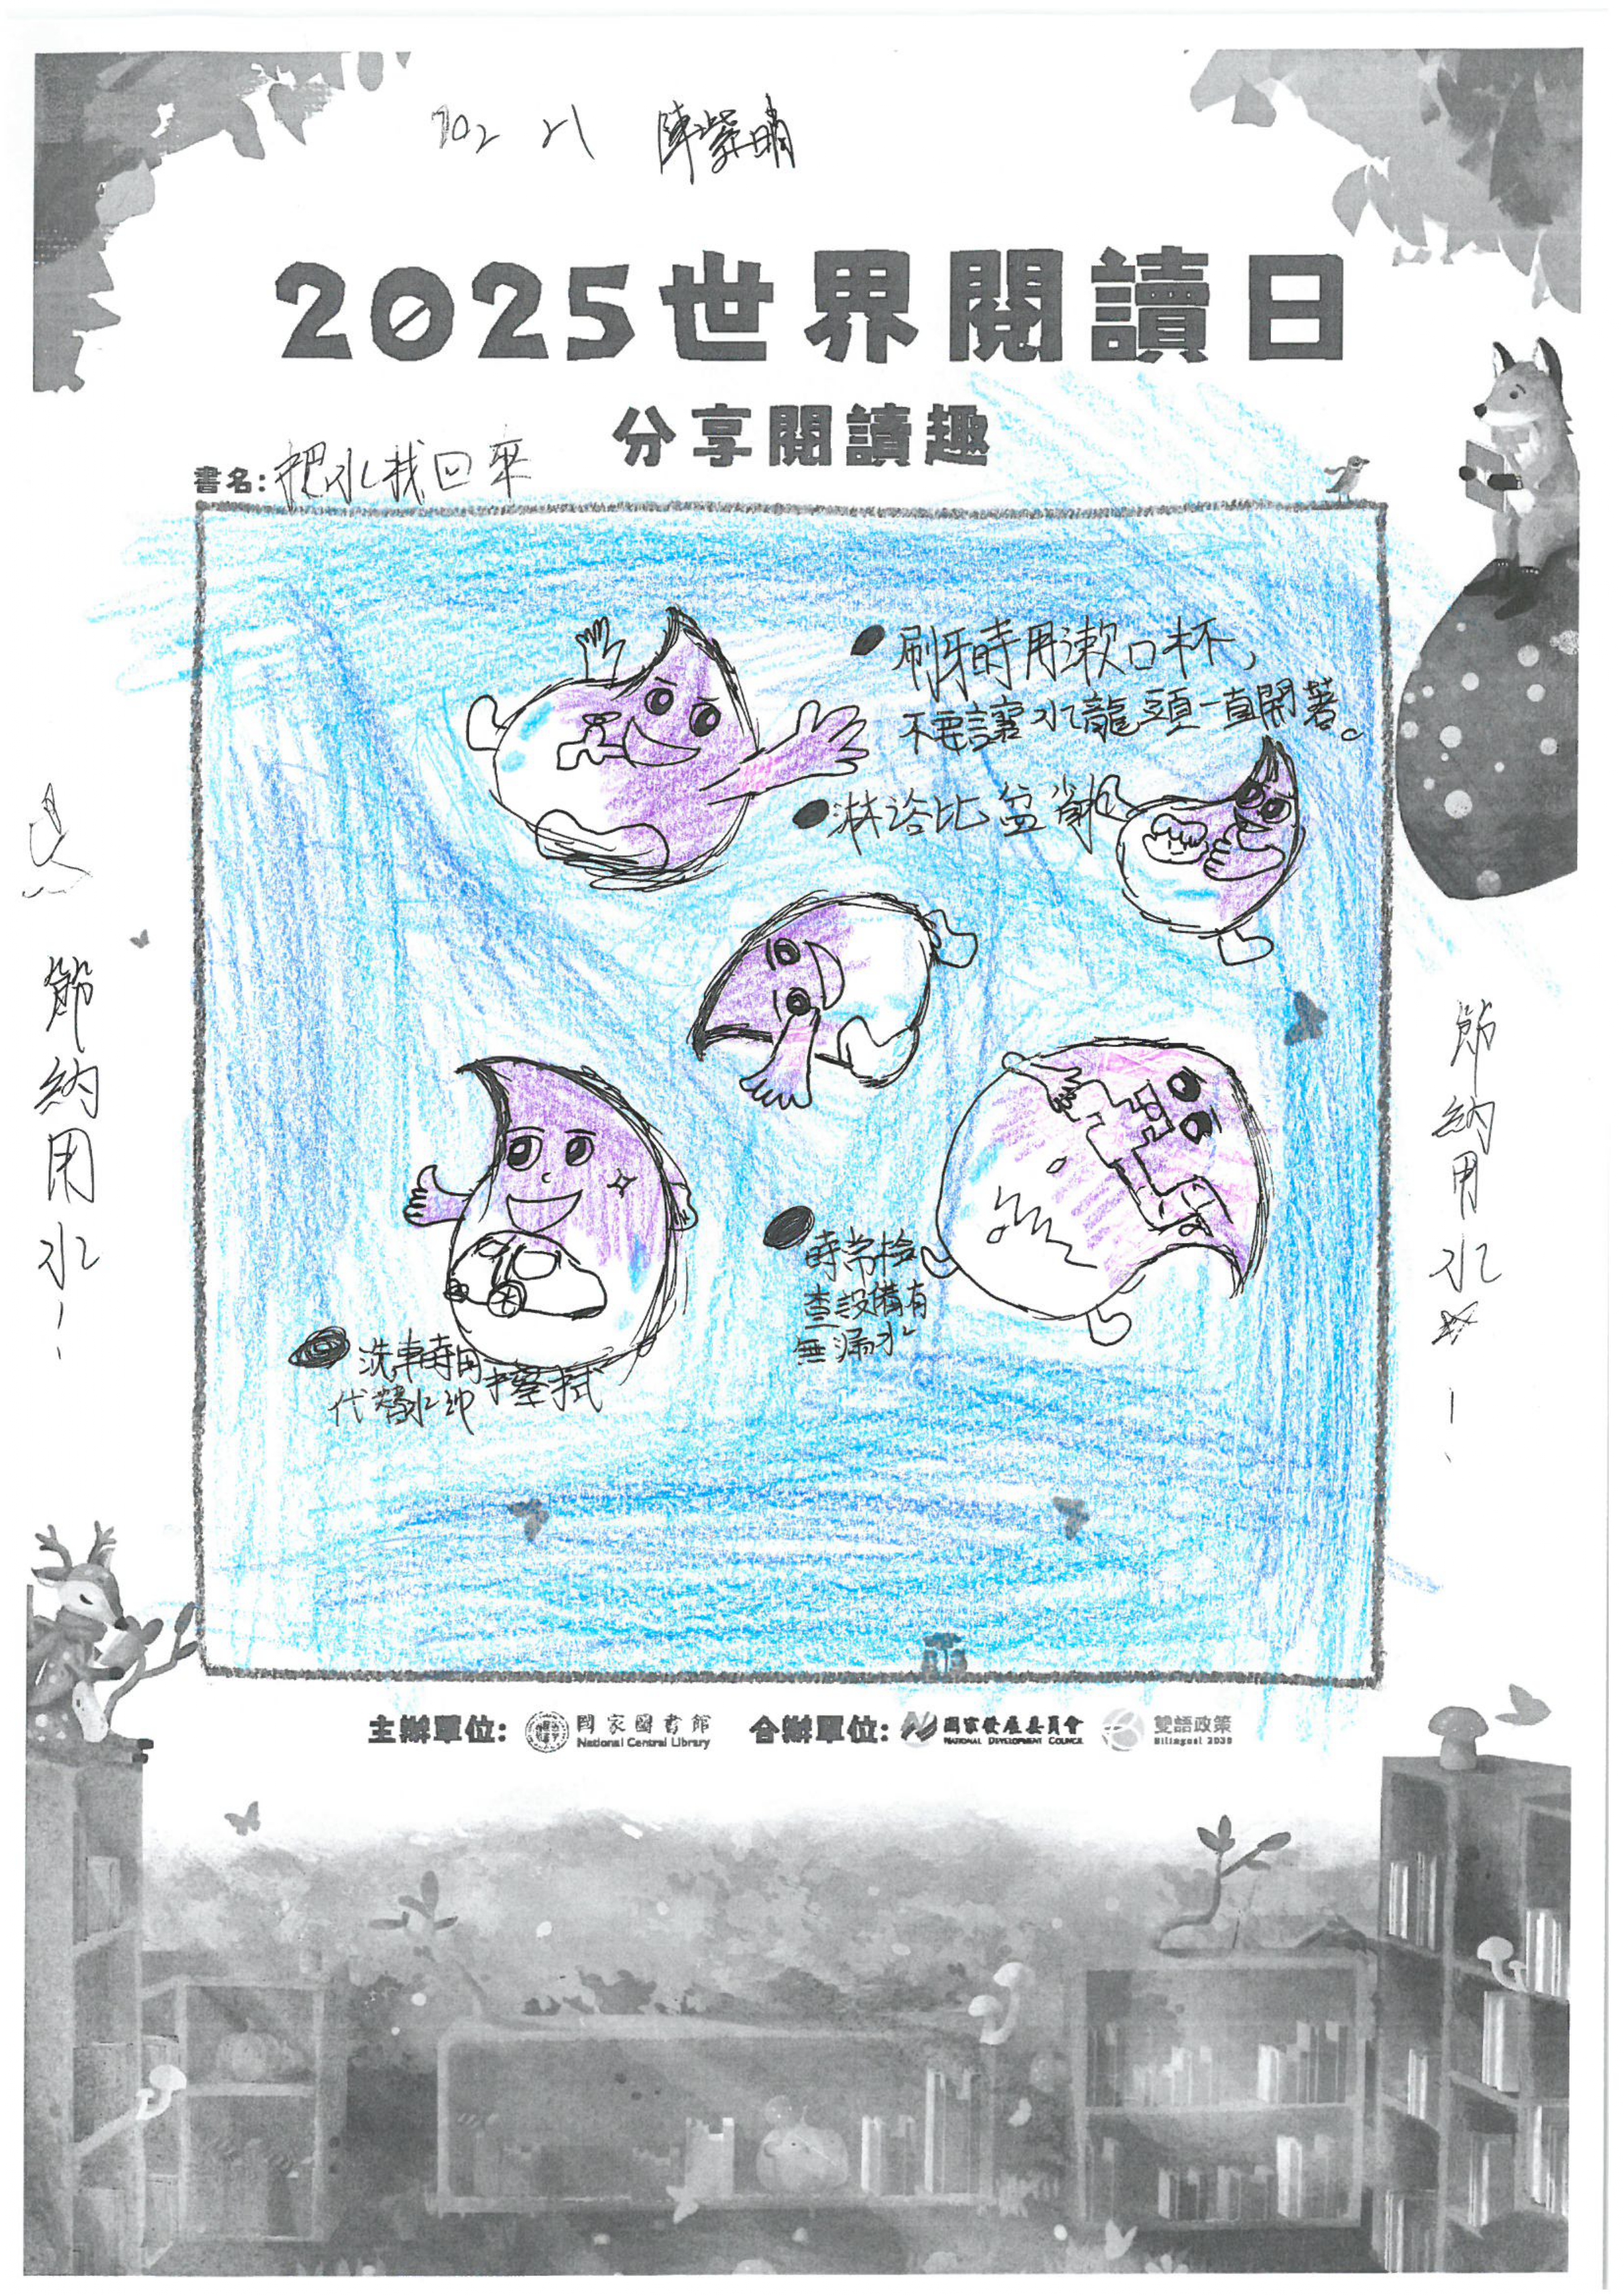 702 21 陳紫晴
2025世界閱讀日
分享閱讀趣
書名:把水找回來
刷牙時用漱口杯,
不要讓水龍頭一直開著。
淋浴比盆浴省
時常檢
查設備有
無漏水
洗車時用擦拭
代替水沖
節納用水!
節納用水!
主辦單位: 國家圖書館 合辦單位: 國家發展委員會 雙語政策
National Central Library NATIONAL DEVELOPMENT COUNCIL Bilingual 2030